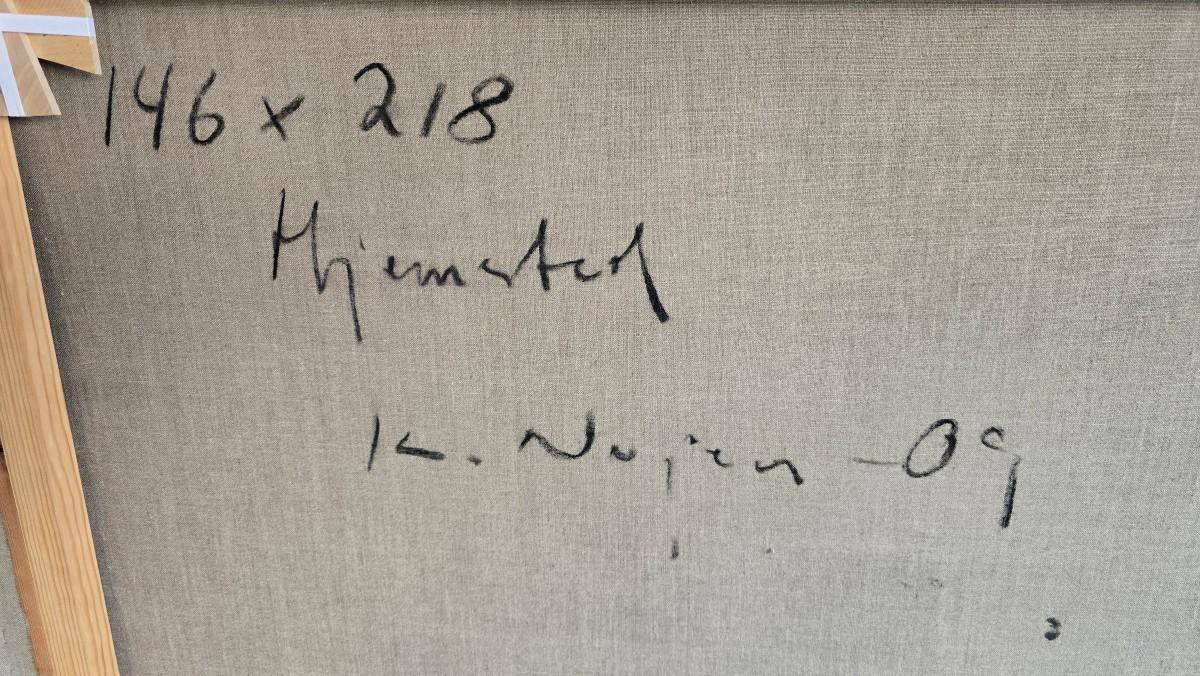 146 x 218
Hjemsted
K. Nujen -09